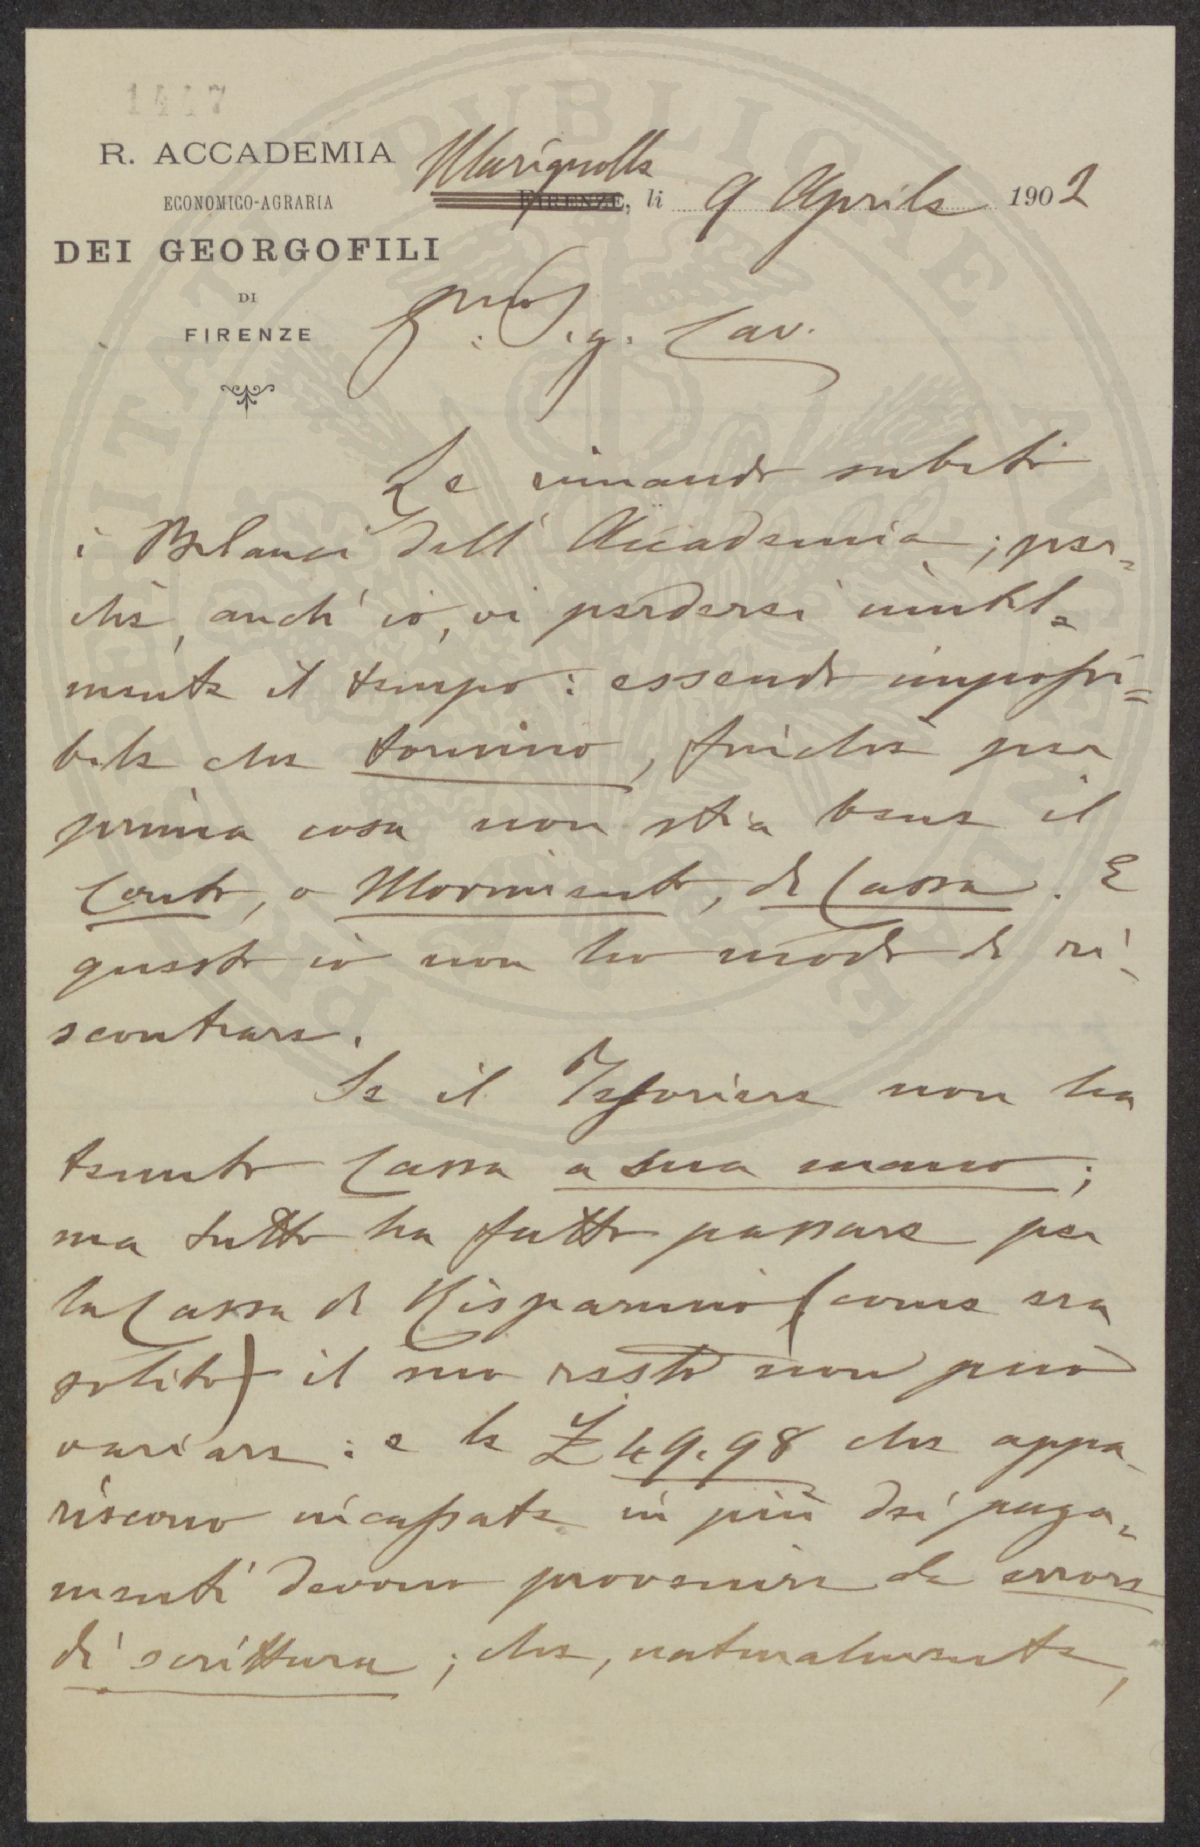 1417
R. ACCADEMIA
ECONOMICO-AGRARIA
DEI GEORGOFILI
DI
FIRENZE
Marignolle
FIRENZE, li 9 Aprile 1902
Sig. Cav.
Le rimando subito
i Bilanci dell' Accademia; per=
chè, anch' io, vi perderei inutil=
mente il tempo: essendo impossi=
bile che tornino, finchè per
prima cosa non stia bene il
Conto, o Movimento, di Cassa. E
questo io non ho modo di ri=
scontrare.
Se il Tesoriere non ha
tenuto Cassa a sua mano;
ma tutto ha fatto passare per
la Cassa di Risparmio (come era
solito) il suo resto non può
variare: e le £ 49.98 che appa=
riscono incassate in più dei paga=
menti devono provenire da errore
di scrittura; che, naturalmente,
PROSPERITATI PUBLICAE AUGENDAE